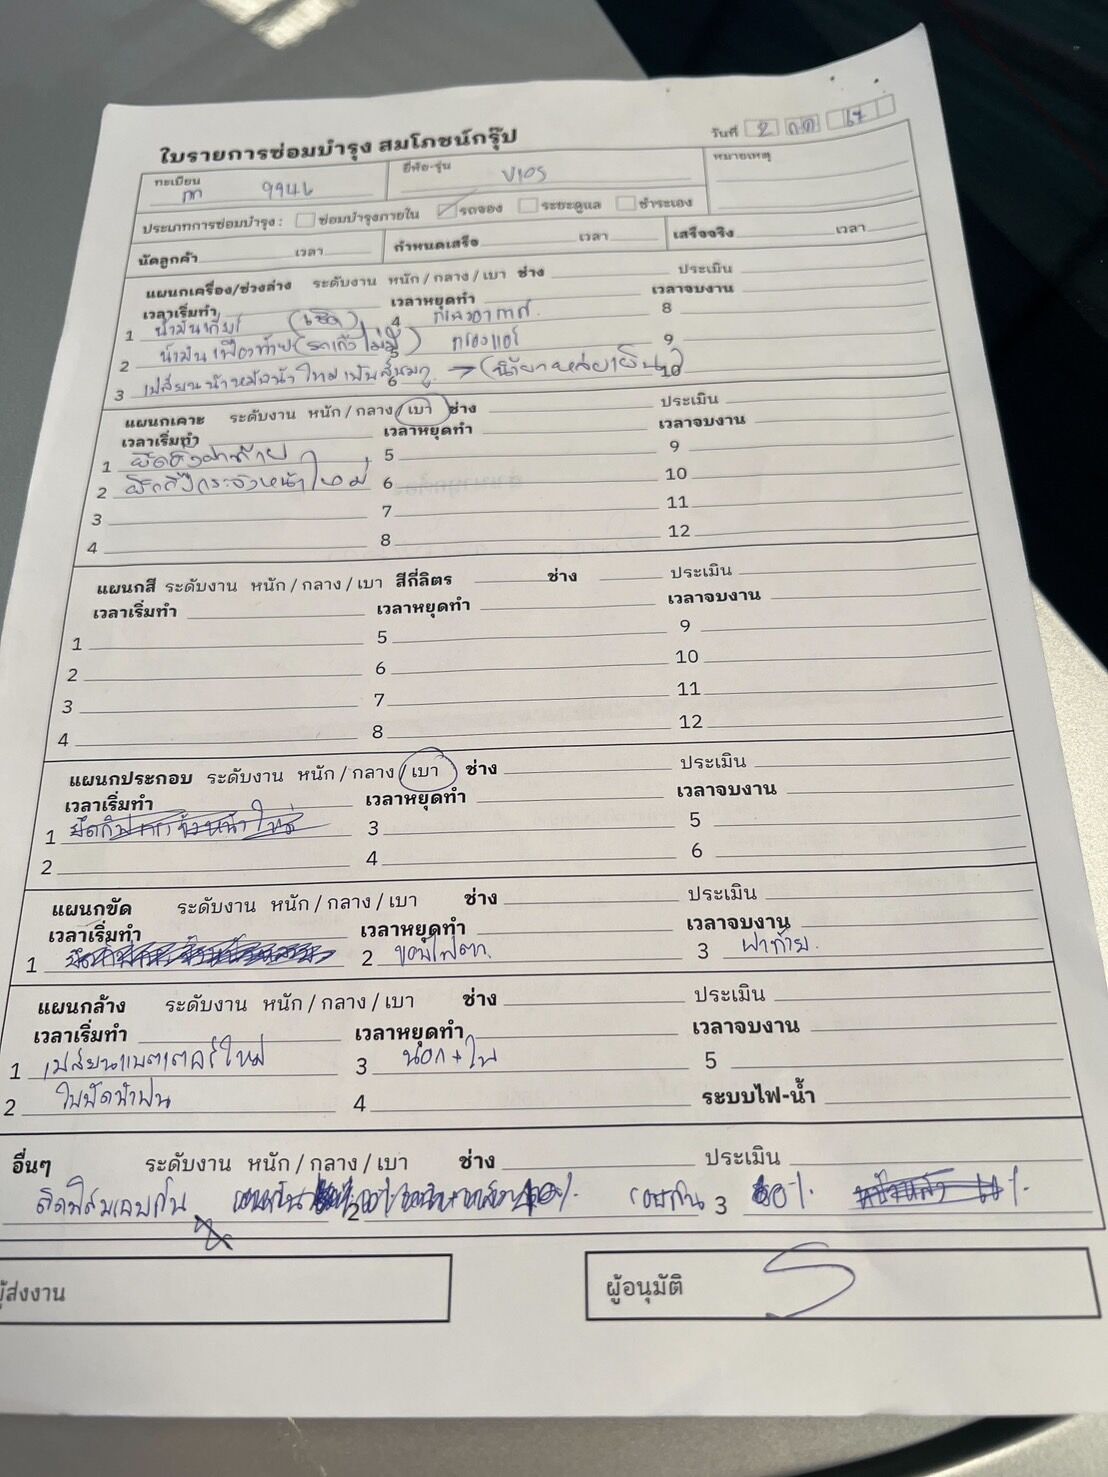 ใบรายการซ่อมบำรุง สมโภชน์กรุ๊ป
วันที่ 2 กค 67
ทะเบียน กก 9946 ยี่ห้อ-รุ่น VIOS หมายเหตุ
ประเภทการซ่อมบำรุง : ซ่อมบำรุงภายใน รถจอง ระยะดูแล ชำระเอง
นัดลูกค้า เวลา กำหนดเสร็จ เวลา เสร็จจริง เวลา
แผนกเครื่อง/ช่วงล่าง ระดับงาน หนัก / กลาง / เบา ช่าง ประเมิน
เวลาเริ่มทำ เวลาหยุดทำ เวลาจบงาน
1 น้ำมันเกียร์ (เช็ค) 4 กรองอากาศ. 8
2 น้ำมันเฟืองท้าย 5 กรองแอร์ 9
3 เปลี่ยน 6 10
แผนกเคาะ ระดับงาน หนัก / กลาง / เบา ช่าง ประเมิน
เวลาเริ่มทำ เวลาหยุดทำ เวลาจบงาน
1 ฝาท้าย 5 9
2 กระจังหน้าใหม่ 6 10
3 7 11
4 8 12
แผนกสี ระดับงาน หนัก / กลาง / เบา สีกี่ลิตร ช่าง ประเมิน
เวลาเริ่มทำ เวลาหยุดทำ เวลาจบงาน
1 5 9
2 6 10
3 7 11
4 8 12
แผนกประกอบ ระดับงาน หนัก / กลาง / เบา ช่าง ประเมิน
เวลาเริ่มทำ เวลาหยุดทำ เวลาจบงาน
1 3 5
2 4 6
แผนกขัด ระดับงาน หนัก / กลาง / เบา ช่าง ประเมิน
เวลาเริ่มทำ เวลาหยุดทำ เวลาจบงาน
1 2 ขอบไฟตา. 3 ฝาท้าย.
แผนกล้าง ระดับงาน หนัก / กลาง / เบา ช่าง ประเมิน
เวลาเริ่มทำ เวลาหยุดทำ เวลาจบงาน
1 เปลี่ยนแบตเตอรี่ใหม่ 3 นอก+ใน 5
2 ใบปัดน้ำฝน 4 ระบบไฟ-น้ำ
อื่นๆ ระดับงาน หนัก / กลาง / เบา ช่าง ประเมิน
ติดฟิล์ม 2 รอบคัน 3 60%
ผู้ส่งงาน ผู้อนุมัติ